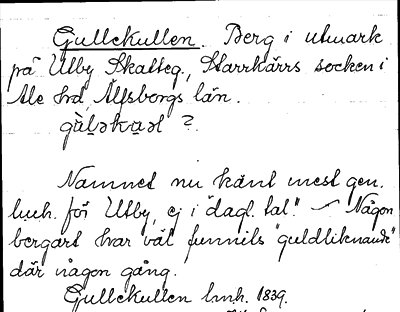 Gullekullen. Berg i utmark
på Utby Skatteg., Starrkärrs socken i
Ale hrd Älfsborgs län.
?
Namnet nu känt mest gen.
lmh. för Utby, ej i "dagl. tal." — Någon
bergart har väl funnits "guldliknande"
där någon gång.
Gullekullen lmh. 1839.